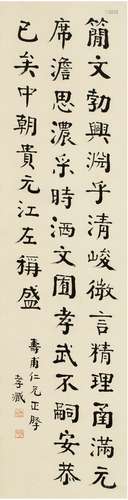 簡文勃興淵乎清峻微言精理函滿元
席澹思濃采時洒文囿孝武不嗣安恭
已矣中朝貴元江左稱盛
壽甫仁兄正擘
孝臧